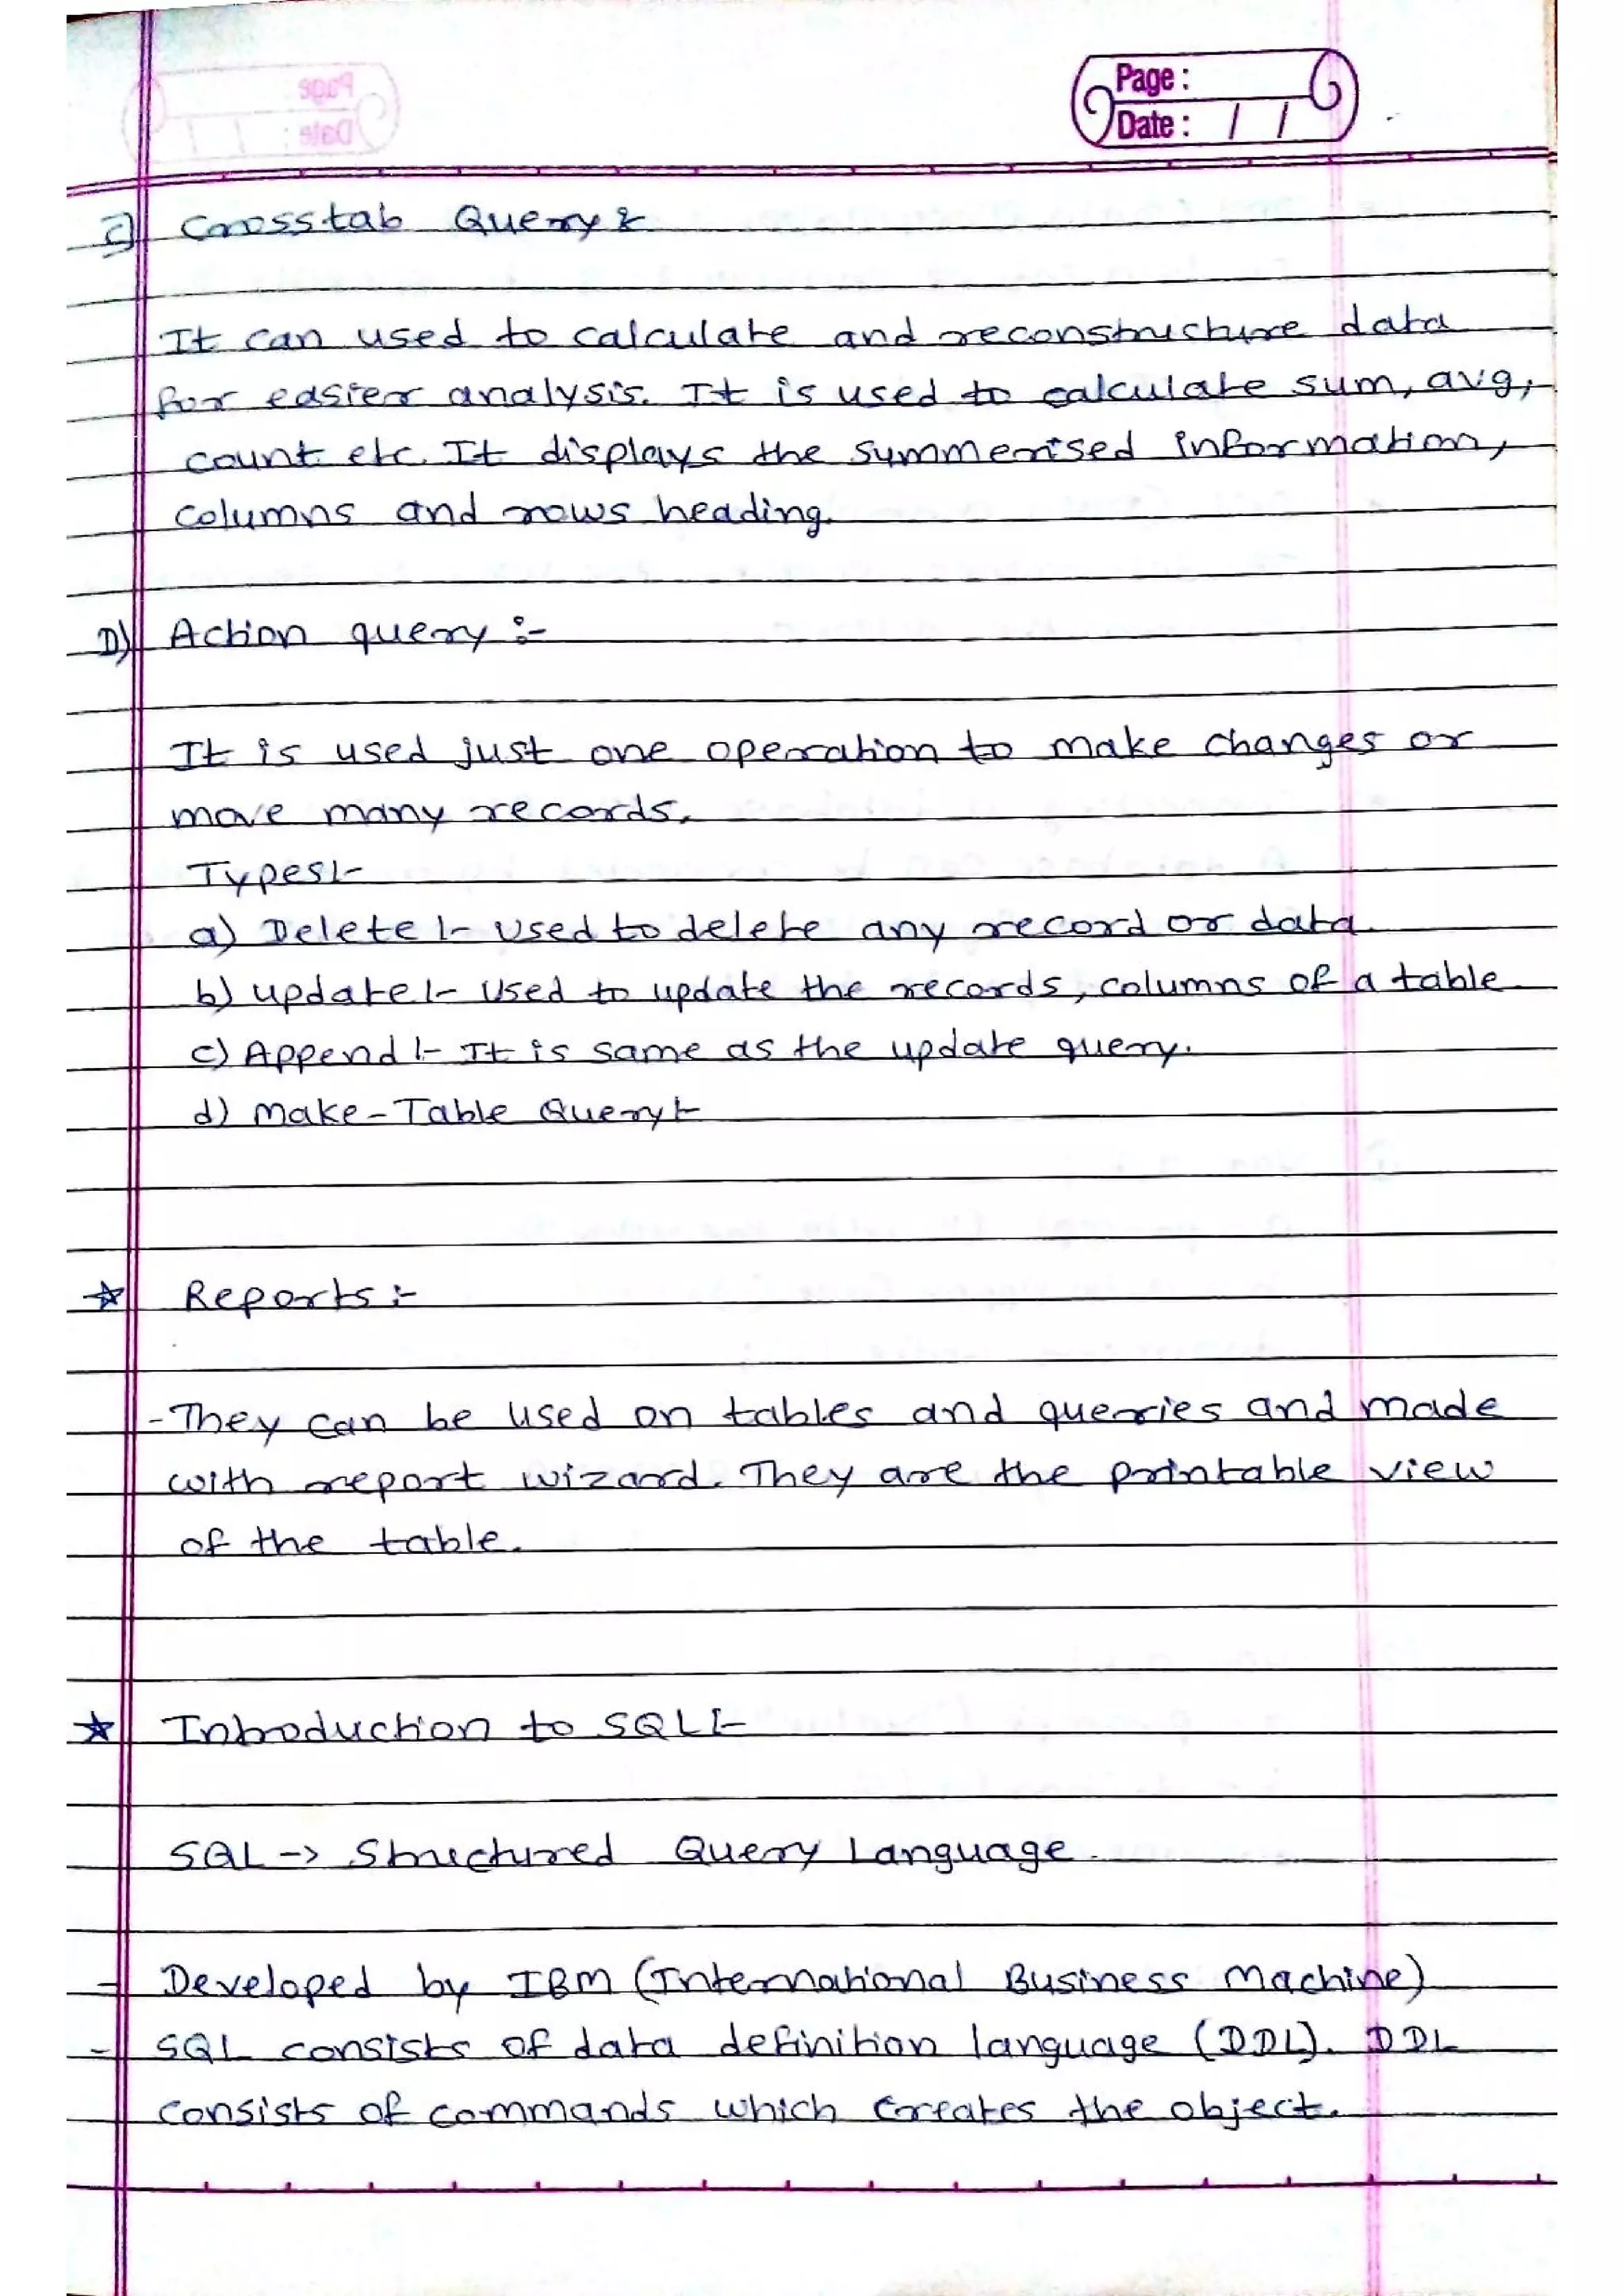 Page :
Date : / /
C) Crosstab Query :-
It can used to calculate and reconstructure data
for easier analysis. It is used to calculate sum, avg,
count etc. It displays the summerised information,
columns and rows heading.
D) Action query :-
It is used just one operation to make changes or
move many records.
Types :-
a) Delete :- Used to delete any record or data.
b) update :- Used to update the records, columns of a table
c) Append :- It is same as the update query.
d) Make-Table Query :-
☆ Reports :-
- They can be used on tables and queries and made
with report wizard. They are the printable view
of the table.
☆ Introduction to SQL :-
SQL -> Structured Query Language.
- Developed by IBM (International Business Machine)
- SQL consists of data definition language (DDL). DDL
consists of commands which creates the object.